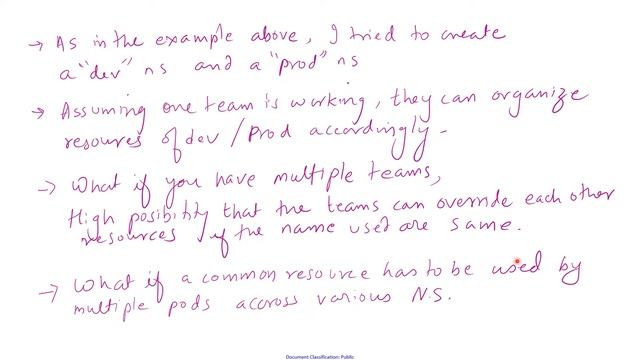 → As in the example above, I tried to create
a "dev" ns and a "prod" ns
→ Assuming one team is working, they can organize
resoures of dev / Prod accordingly.
→ What if you have multiple teams,
High posibility that the teams can override each other
resources if the name used are same.
→ What if a common resource has to be used by
multiple pods accross various N.S.
Document Classification: Public